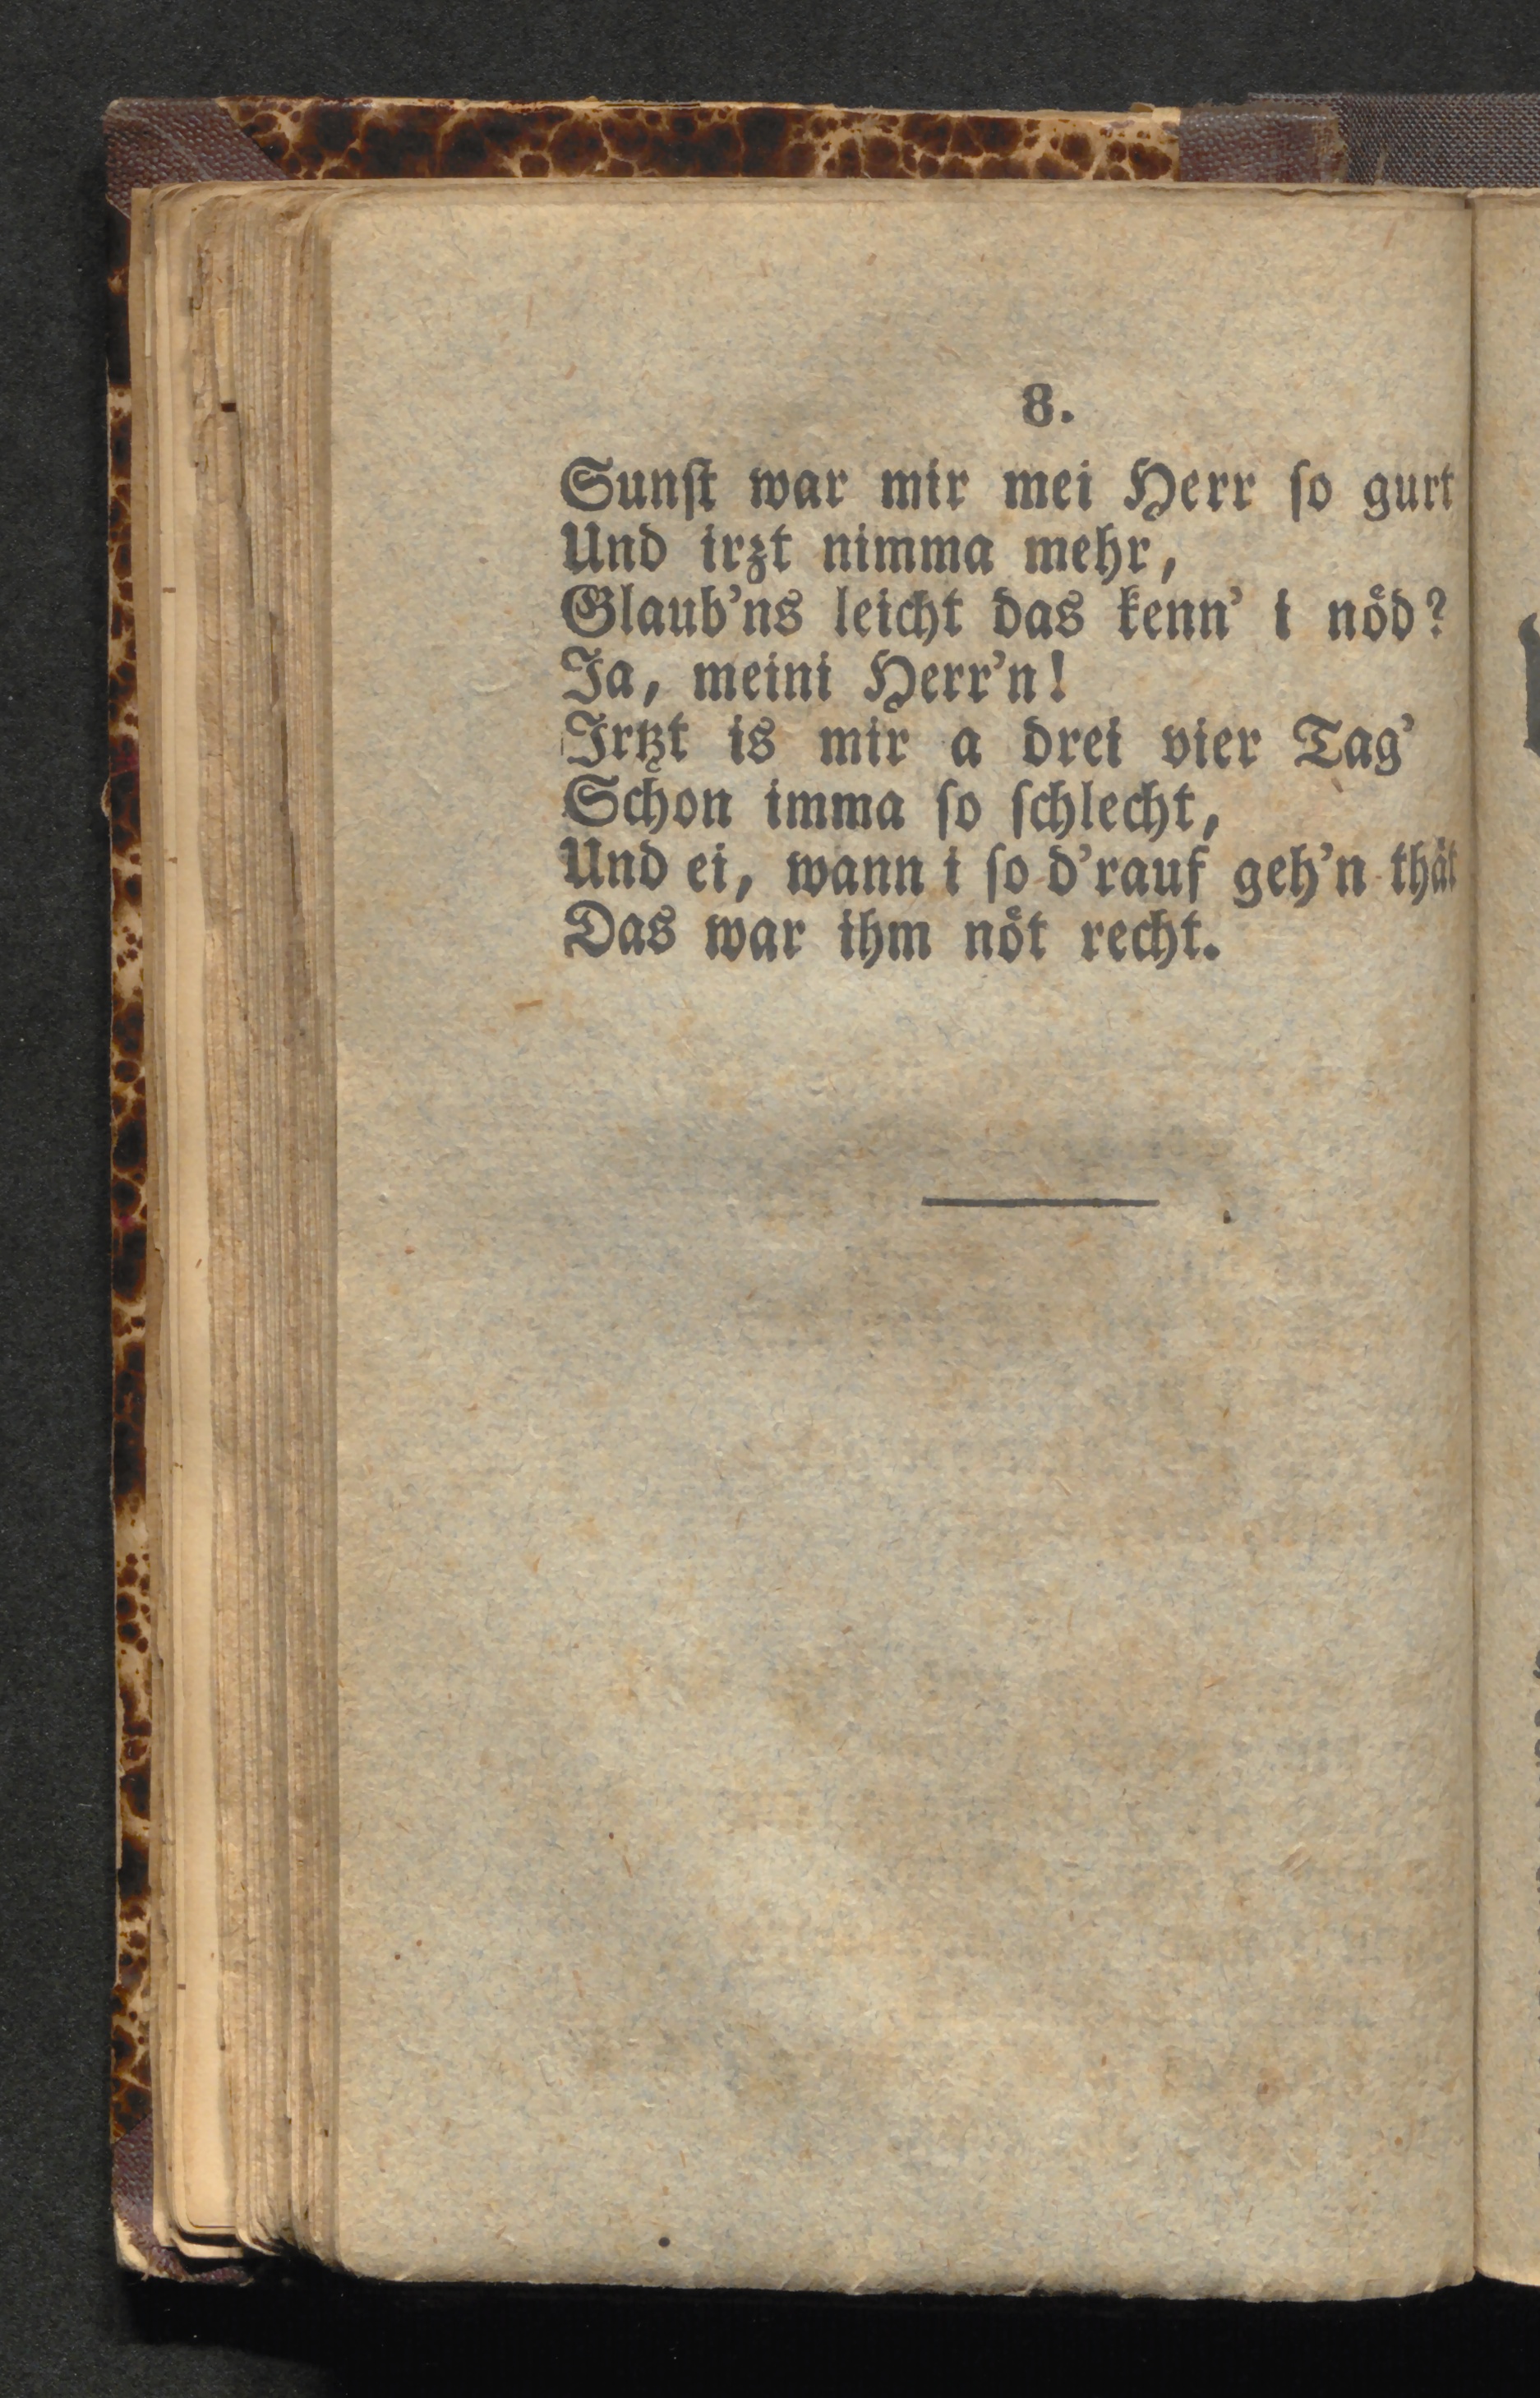 8.
Sunſt war mir mei Herr ſo gurt
Und irzt nimma mehr,
Glaub'ns leicht das kenn' i nöd?
Ja, meini Herr'n!
Irtzt is mir a drei vier Tag'
Schon imma ſo ſchlecht,
Und ei, wann i ſo d'rauf geh'n thät
Das war ihm nöt recht.